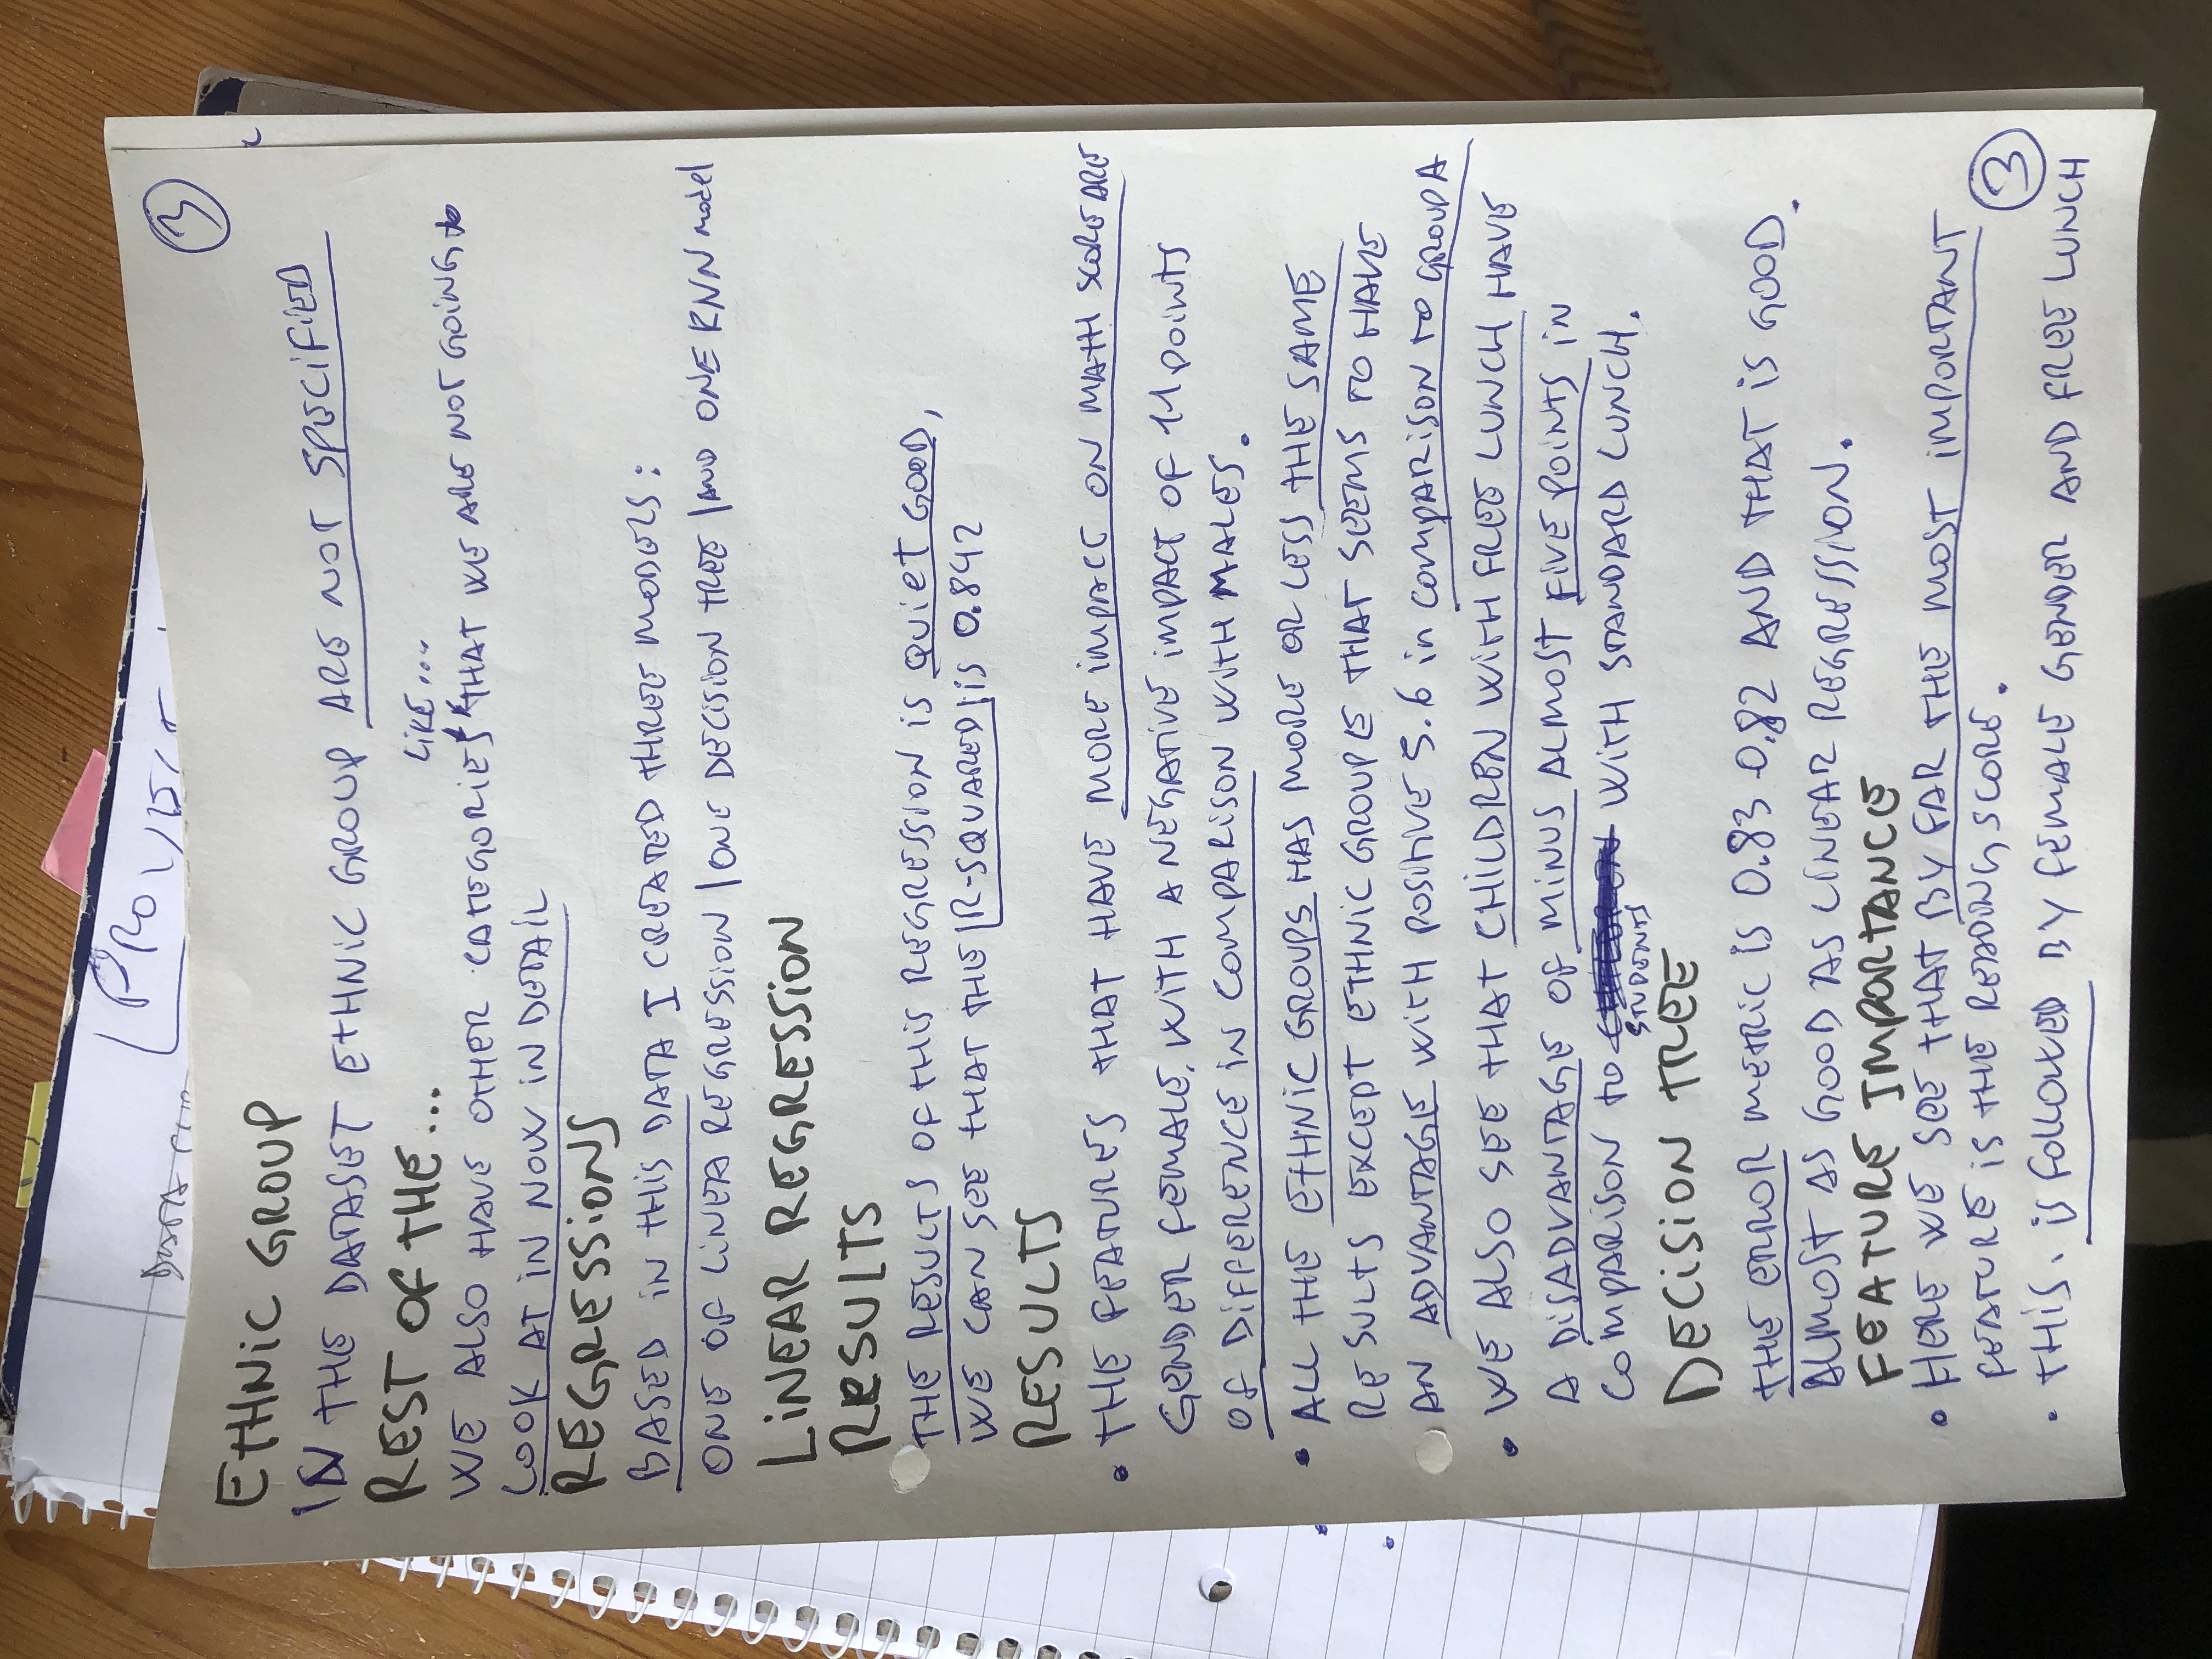 DATA
③
ETHNIC GROUP
IN THE DATASET ETHNIC GROUP ARE NOT SPECIFIED
REST OF THE...
LIKE...
WE ALSO HAVE OTHER CATEGORIES THAT WE ARE NOT GOING to
LOOK AT IN NOW IN DETAIL
REGRESSIONS
BASED IN THIS DATA I CREATED THREE MODELS:
ONE OF LINEA REGRESSION / ONE DECISION TREE / AND ONE KNN model
LINEAR REGRESSION
RESULTS
THE RESULTS OF THIS REGRESSION IS QUIET GOOD,
WE CAN SEE THAT THE |R-SQUARED| IS 0.842
RESULTS
• THE FEATURES THAT HAVE MORE IMPACT ON MATH SCORE ARE
GENDER FEMALE, WITH A NEGATIVE IMPACT OF 11 POINTS
OF DIFFERENCE IN COMPARISON WITH MALES.
• ALL THE ETHNIC GROUPS HAS MORE OR LESS THE SAME
RESULTS EXCEPT ETHNIC GROUP E THAT SEEMS TO HAVE
AN ADVANTAGE WITH POSITIVE 5.6 in COMPARISON TO GROUP A
• WE ALSO SEE THAT CHILDREN WITH FREE LUNCH HAVE
A DISADVANTAGE OF MINUS ALMOST FIVE POINTS IN
COMPARISON TO CHILDREN WITH STANDARD LUNCH.
STUDENTS
DECISION TREE
THE ERROR METRIC IS 0.83 0.82 AND THAT IS GOOD.
ALMOST AS GOOD AS LINEAR REGRESSION.
FEATURE IMPORTANCE
• HERE WE SEE THAT BY FAR THE MOST IMPORTANT
FEATURE IS THE READING SCORE.
③
• THIS. is followED BY FEMALE GENDER AND FREE LUNCH